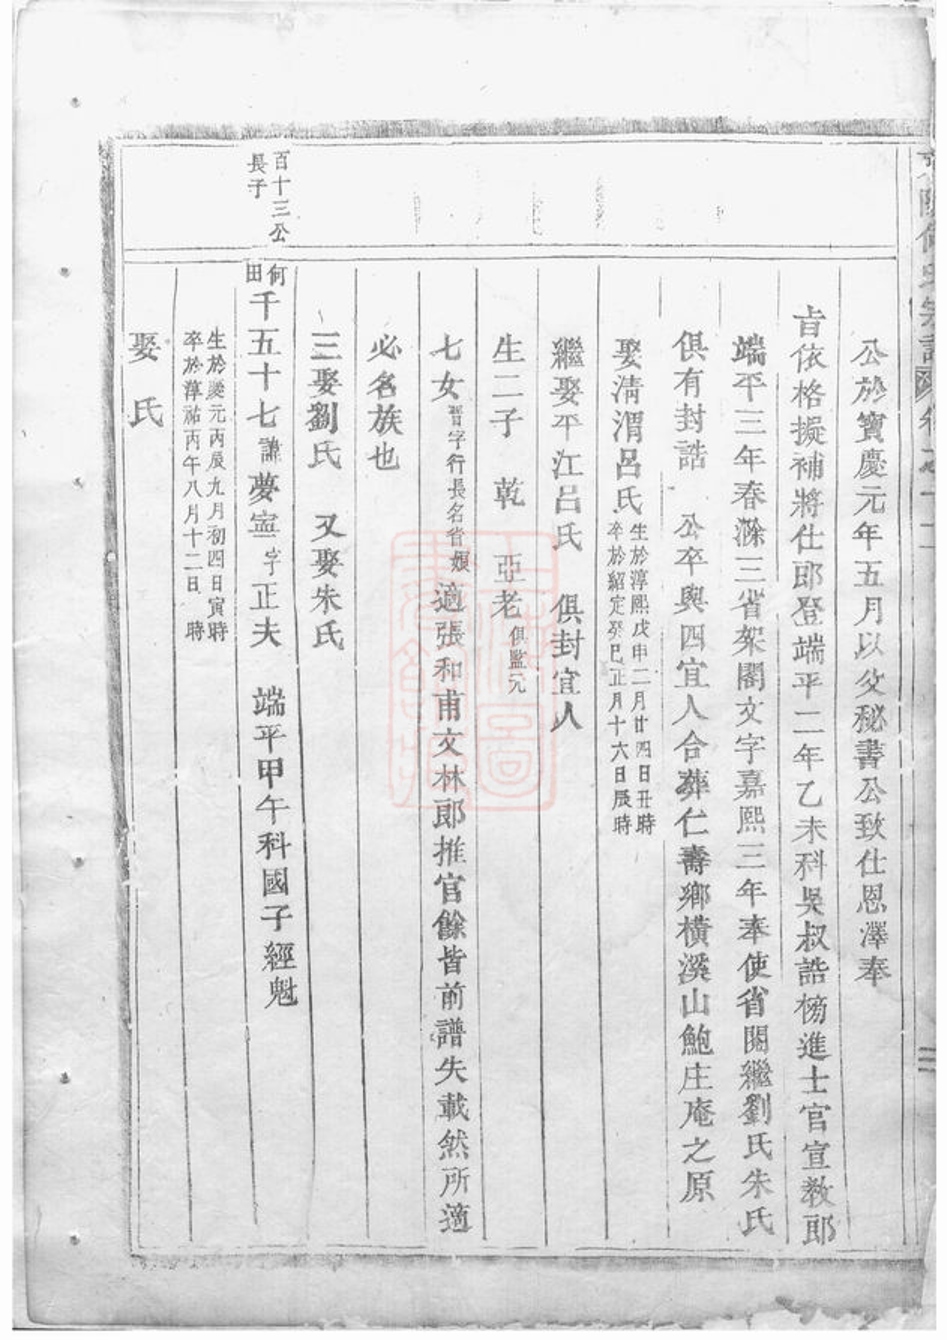 何氏宗譜
公於寶慶元年五月以父秘書公致仕恩澤奉
旨依格擬補將仕郎登端平二年乙未科吳叔誥榜進士官宣教郎
端平三年春滁三省架閣文字嘉熙三年奉使省闈繼劉氏朱氏
俱有封誥 公卒與四宜人合葬仁壽鄉橫溪山鮑庄庵之原
娶清渭呂氏 生於淳熙戊申二月廿四日丑時
卒於紹定癸巳正月十六日辰時
繼娶平江呂氏 俱封宜人
生二子 乾 亞老 俱監元
七女 晉字行長名省娘 適張和甫文林郎推官餘皆前譜失載然所適
必名族也
三娶劉氏 又娶朱氏
百十三公
長子
何田
千五十七 諱 夢寔 字 正夫 端平甲午科國子經魁
生於慶元丙辰九月初四日寅時
卒於淳祐丙午八月十二日 時
娶 氏